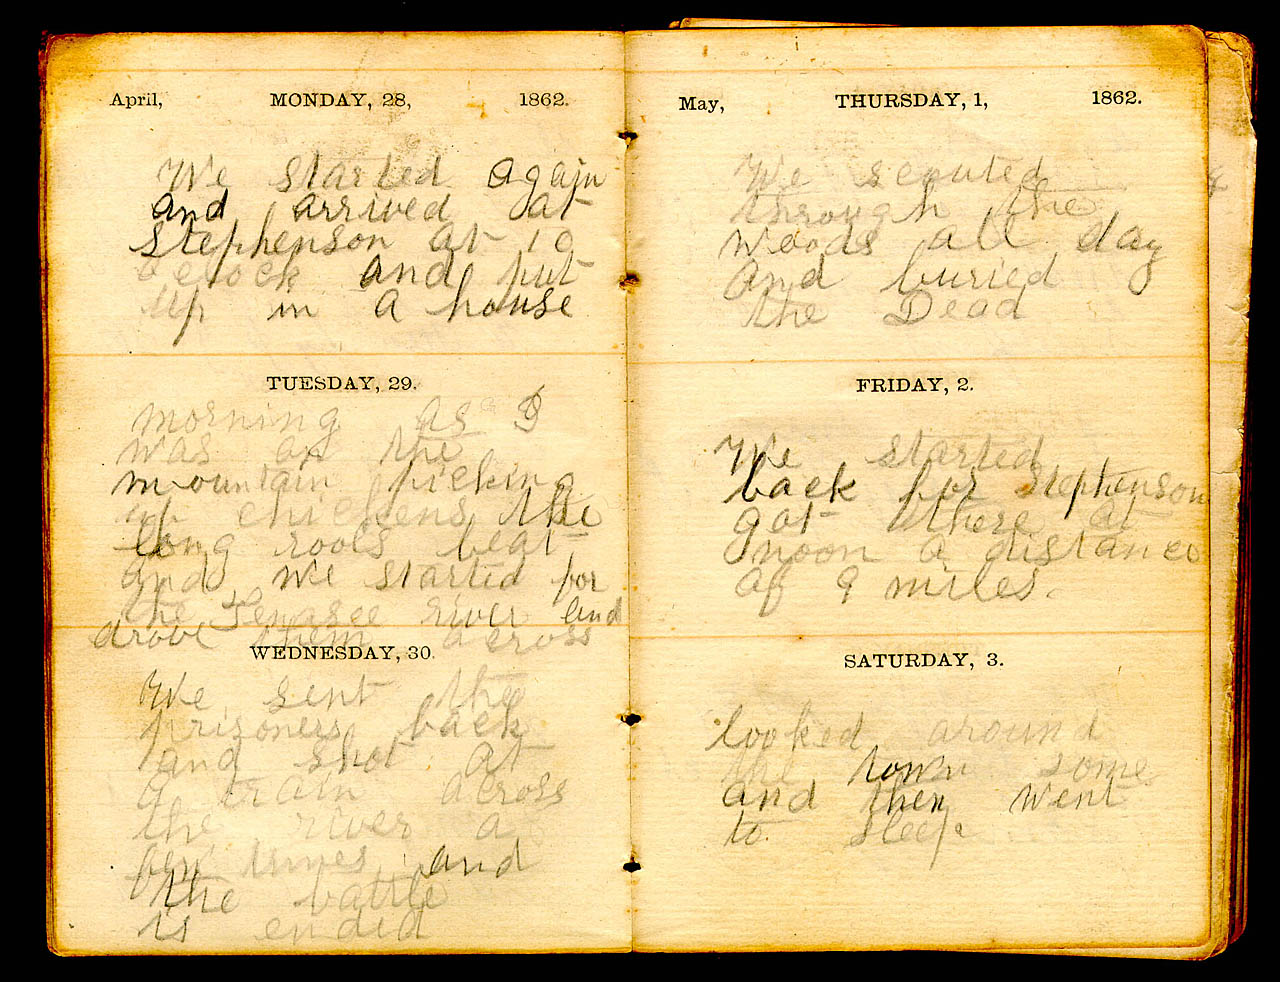 April, MONDAY, 28, 1862.
We started again
and arrived at
Stephenson at 10
clock and put
up in a house
TUESDAY, 29.
morning as I
was on the
mountain picking
up chickens the
long rools beat
and we started for
the Tenasee river and
drove them across
WEDNESDAY, 30.
We sent the
prisoners back
and shot at
a train across
the river a
few times and
the battle
is ended
May, THURSDAY, 1, 1862.
We scouted
through the
woods all day
and buried
the Dead
FRIDAY, 2.
We started
back for Stephenson
got there at
noon a distance
of 9 miles.
SATURDAY, 3.
looked around
the town some
and then went
to sleep